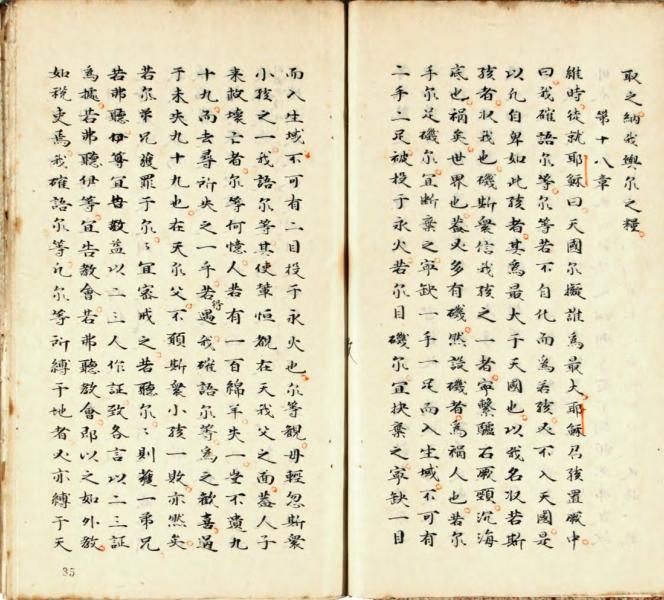 取之納我與尔之糧
第十八章
維時徒就耶穌曰天國尔擬誰為最大耶穌召孩置厥中
曰我確語尔等尔等若不自化而為若孩必不入天國是
以凡自卑如此孩者其為最大于天國也以我名収若斯
孩者収我也磯斯衆信我孩之一者寧繫驢石厥頸沉海
底也禍矣世界也葢必多有磯然設磯者為禍人也若尔
手尔足磯尔宜断棄之寧缺一手一足而入生域不可有
二手二足被投于永火若尔目磯尔宜抉棄之寧缺一目
而入生域不可有二目投于永火也尔等観毋軽忽斯衆
小孩之一我語尔等其使軰恒覌在天我父之面葢人子
来救壊亡者尔等何憶人若有一百綿羊失一豈不遺九
十九而去尋所失之一乎若得遇我確語尔等為之歡喜過
于未失九十九也在天尔父不願斯衆小孩一敗亦然矣
若尔弟兄獲罪于尔〻宜審戒之若聽尔〻則獲一弟兄
若弗聽伊等宜告教益以二三人作証致各言以二三証
為據若弗聽伊等宜告教會若弗聽教會即以之如外教
如税吏焉我確語尔等凡尔等所縛于地者必亦縛于天
35